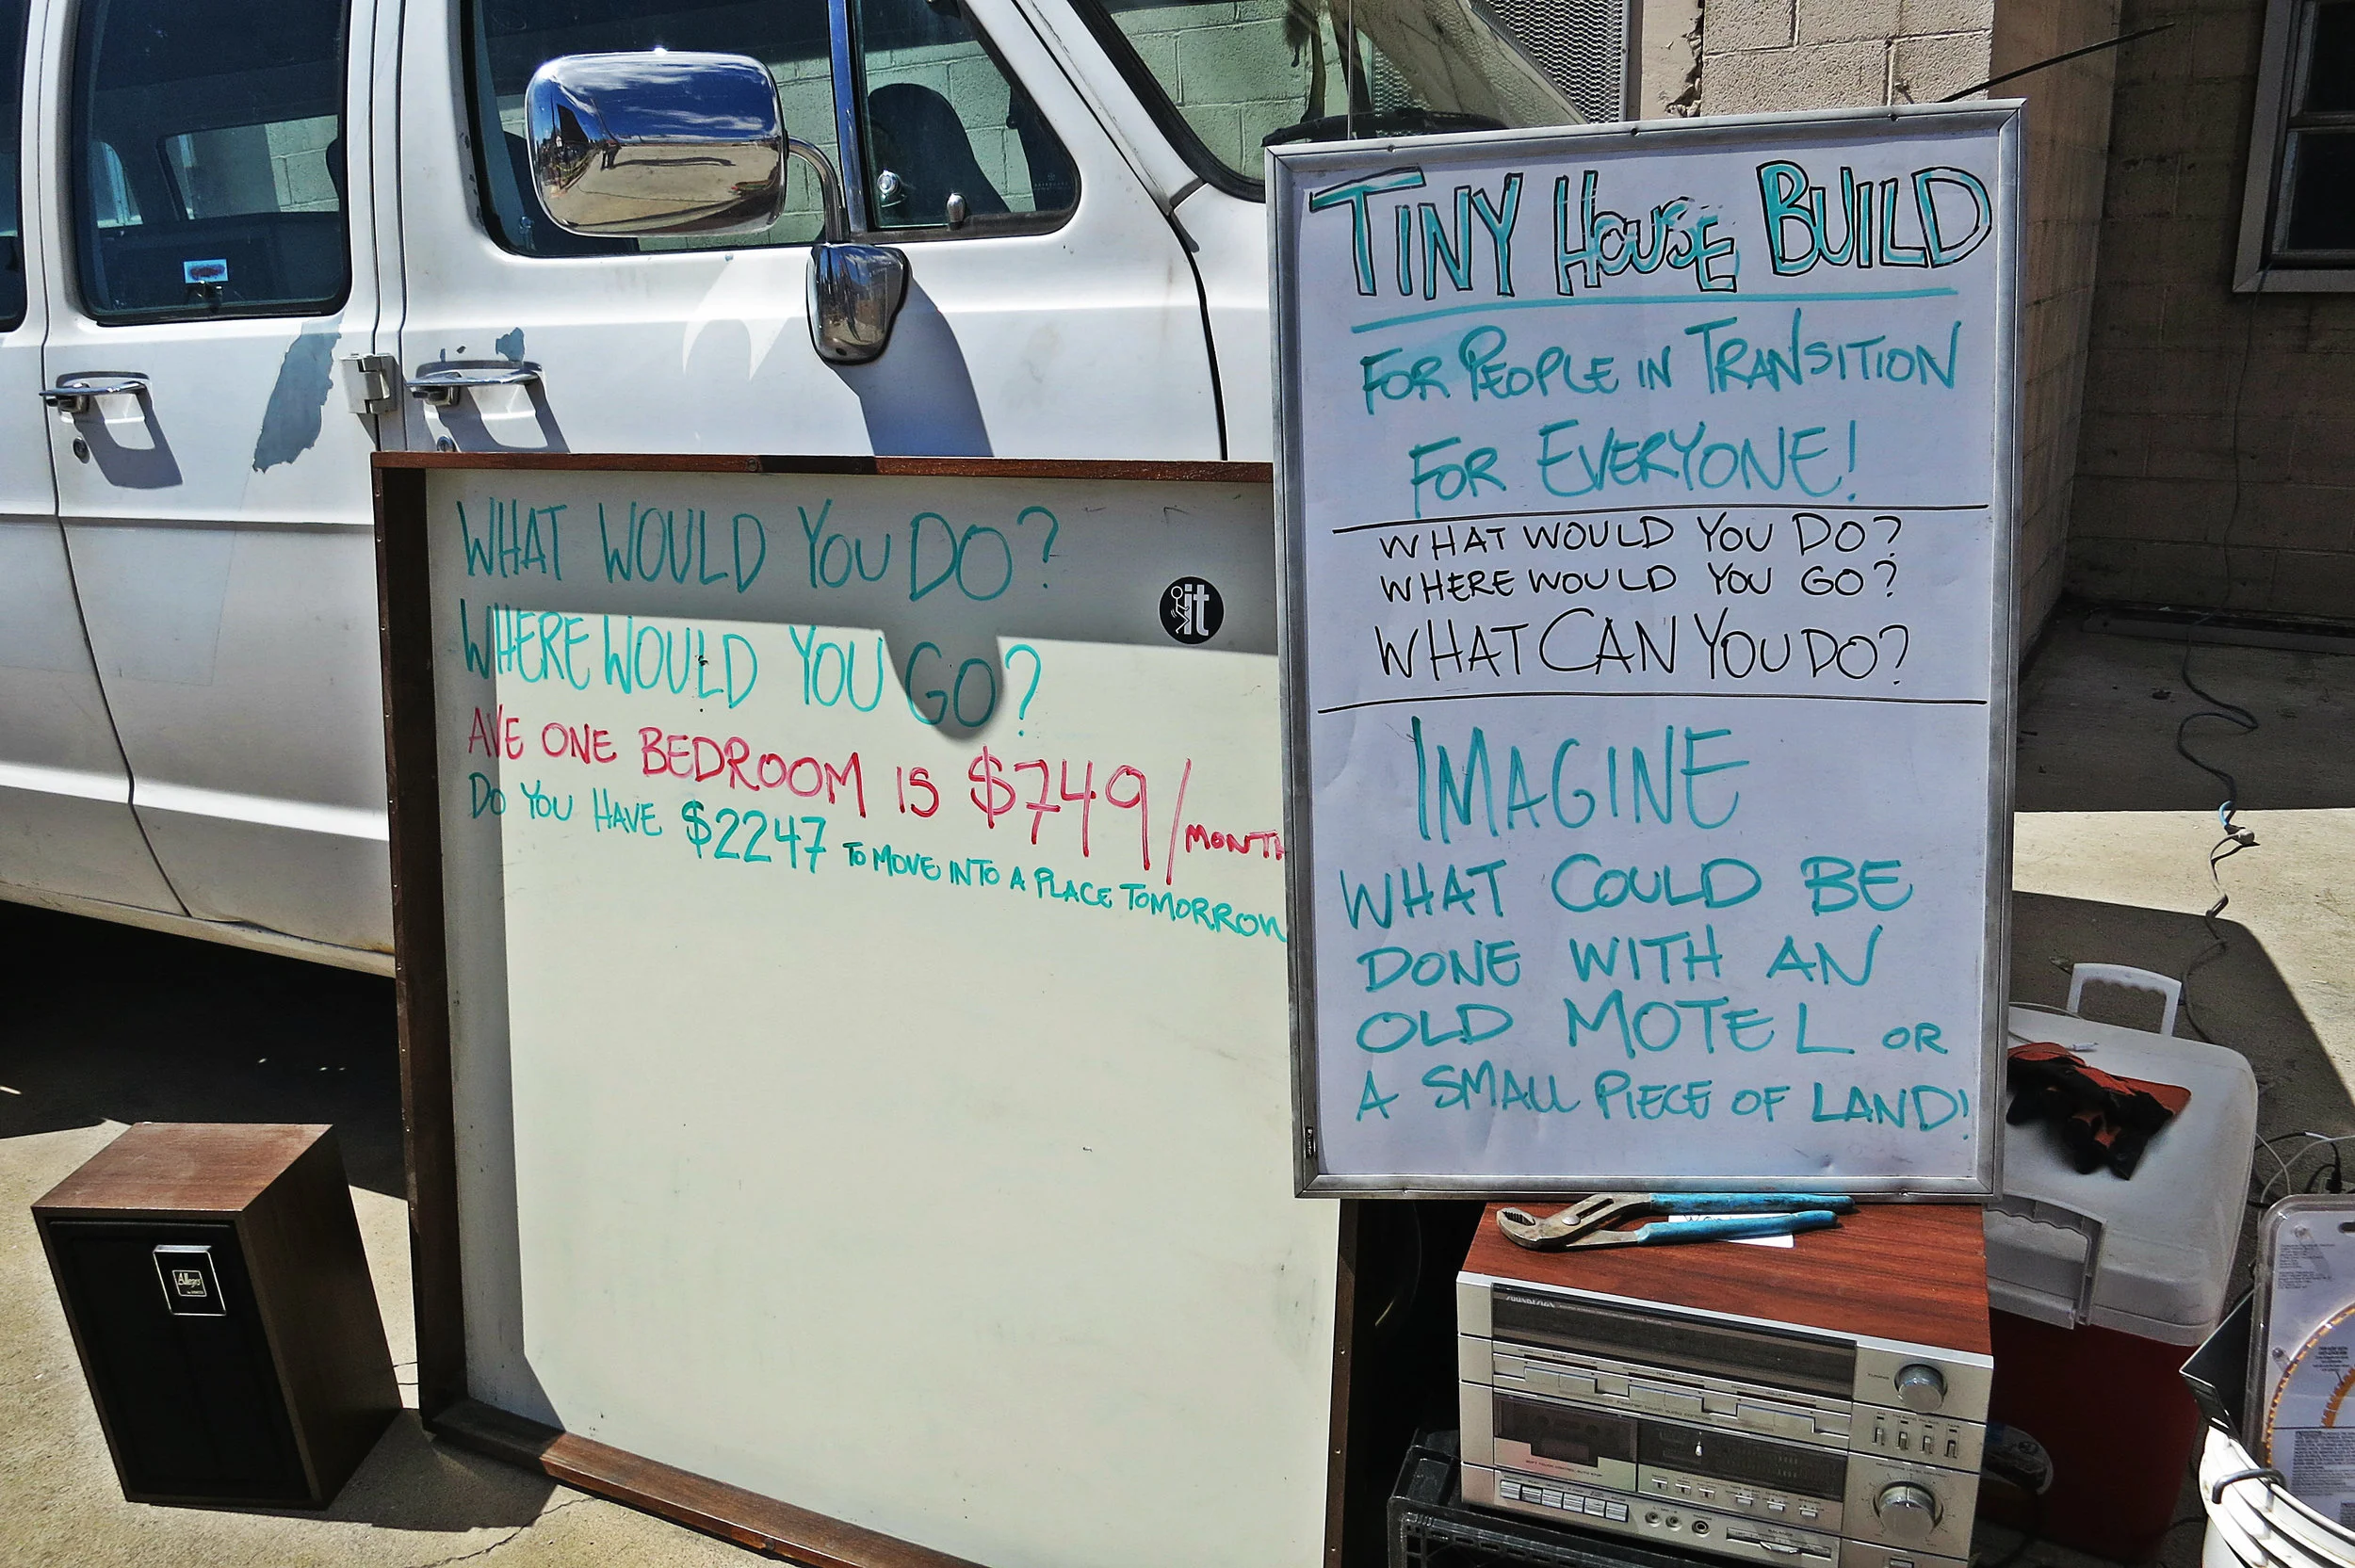 WHAT WOULD YOU DO?
WHERE WOULD YOU GO?
AVE ONE BEDROOM IS $749/MONTH
DO YOU HAVE $2247 TO MOVE INTO A PLACE TOMORROW
it
TINY HOUSE BUILD
FOR PEOPLE IN TRANSITION
FOR EVERYONE!
WHAT WOULD YOU DO?
WHERE WOULD YOU GO?
WHAT CAN YOU DO?
IMAGINE
WHAT COULD BE
DONE WITH AN
OLD MOTEL OR
A SMALL PIECE OF LAND!
Allegro
SOUNDESIGN